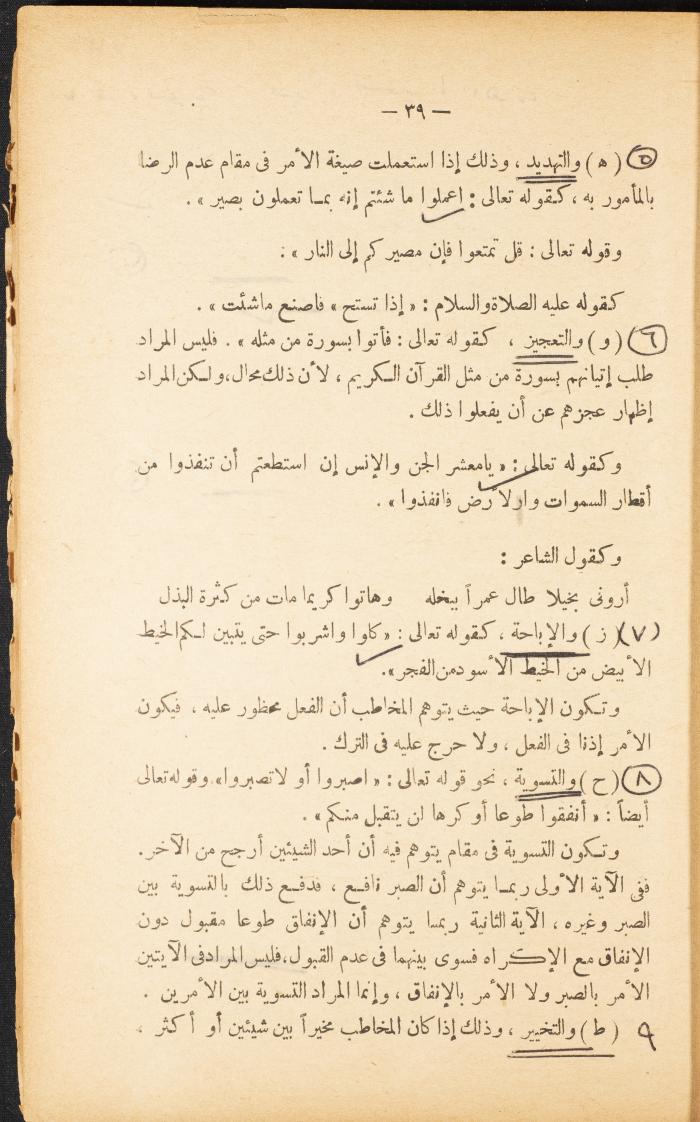 — ٣٩ —
٥ ( ه ) والتهديد ، وذلك إذا استعملت صيغة الأمر فى مقام عدم الرضا
بالمأمور به ، كقوله تعالى : اعملوا ما شئتم إنه بما تعملون بصير » .
وقوله تعالى : قل تمتعوا فإن مصيركم إلى النار » :
كقوله عليه الصلاة والسلام : « إذا تستح » فاصنع ماشئت » .
٦ ( و ) والتعجيز ، كقوله تعالى : فأتوا بسورة من مثله » . فليس المراد
طلب إتيانهم بسورة من مثل القرآن الكريم ، لأن ذلك محال، ولكن المراد
إظهار عجزهم عن أن يفعلوا ذلك .
وكقوله تعالى : « يامعشر الجن والإنس إن استطعتم أن تنفذوا من
أقطار السموات وارلأرض فانفذوا » .
وكقول الشاعر :
أرونى بخيلا طال عمراً ببخله وهاتوا كريما مات من كثرة البذل
(٧) ( ز ) والإباحة ، كقوله تعالى : « كاوا واشربوا حتى يتبين لكم الخيط
الأبيض من الخيط الأسود من الفجر».
وتكون الإباحة حيث يتوهم المخاطب أن الفعل محظور عليه ، فيكون
الأمر إذنا فى الفعل ، ولا حرج عليه فى الترك .
٨ ( ح ) والتسوية ، نحو قوله تعالى : « اصبروا أو لاتصبروا» وقوله تعالى
أيضاً : « أنفقوا طوعا أو كرها لن يتقبل منكم » .
وتكون التسوية فى مقام يتوهم فيه أن أحد الشيئين أرجح من الآخر.
ففى الآية الأولى ربما يتوهم أن الصبر نافع ، فدفع ذلك بالتسوية بين
الصبر وغيره ، الآية الثانية ربما يتوهم أن الإنفاق طوعا مقبول دون
الإنفاق مع الإكراه فسوى بينهما فى عدم القبول، فليس المراد فى الآيتين
الأمر بالصبر ولا الأمر بالإنفاق ، وإنما المراد التسوية بين الأمرين .
٩ ( ط ) والتخيير ، وذلك إذا كان المخاطب مخيراً بين شيئين أو أكثر ،